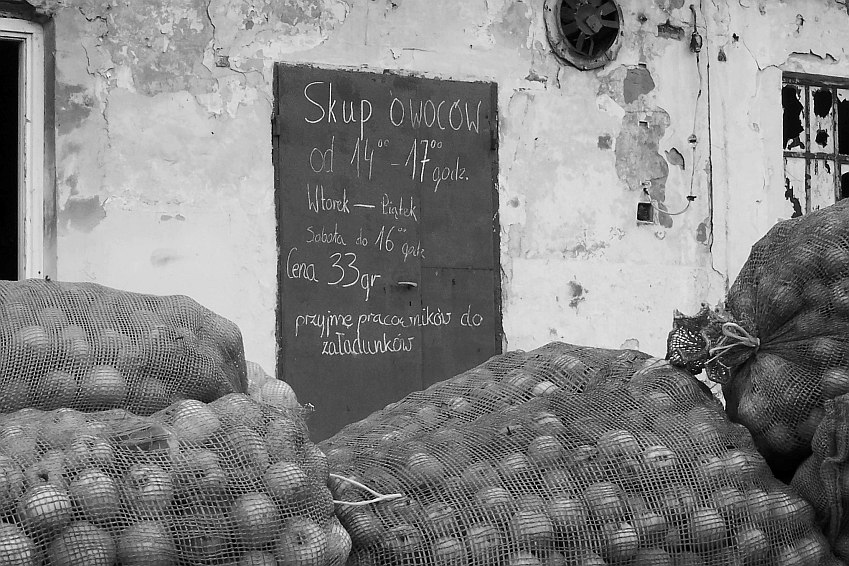 Skup owoców
od 14⁰⁰ - 17⁰⁰ godz.
Wtorek — Piątek
Sobota do 16⁰⁰ godz
Cena 33 gr
przyjmę pracowników do
załadunków